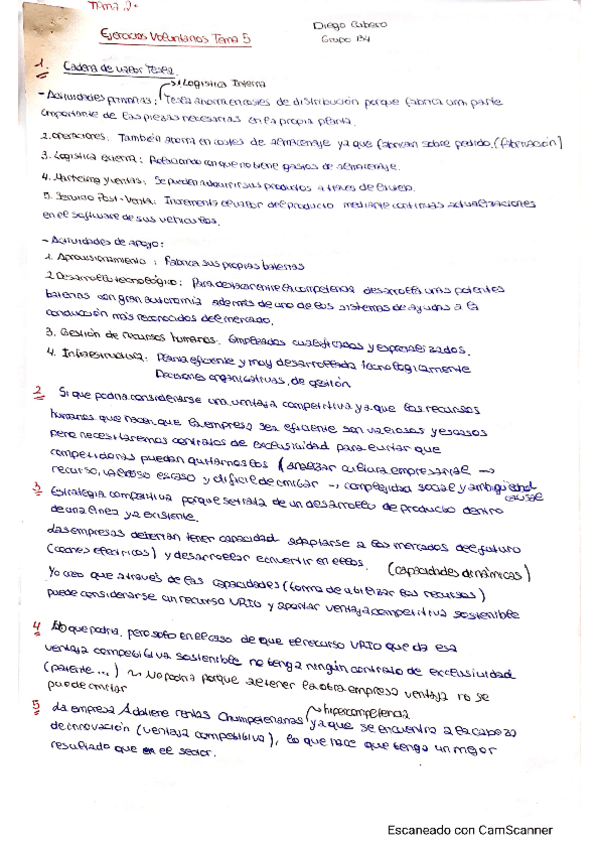 TEMA 2.
Diego Cubero
Ejercicios Voluntarios Tema 5
Grupo B4
1. Cadena de valor Tesla.
1. Logistica Interna
- Actividades primarias: Tesla ahorra en costes de distribución porque fabrica una parte
importante de las piezas necesarias en la propia planta.
2. operaciones: También ahorra en costes de almacenaje ya que fabrican sobre pedido. (fabricación)
3. Logistica externa: Relacionado con que no tiene gastos de almacenaje.
4. Marketing y ventas: Se pueden adquirir sus productos a traves de la web.
5. Servicio Post-Venta: Incrementa el valor del producto mediante continuas actualizaciones
en el software de sus vehículos.
- Actividades de apoyo:
1. Aprovisionamiento: Fabrica sus propias baterias
2 Desarrollo tecnológico: Para destacar entre la competencia desarrolla unas potentes
baterias con gran autonomía además de uno de los sistemas de ayudas a la
conducción más reconocidos del mercado.
3. Gestión de recursos humanos. Empleados cualificados y especializados.
4. Infraestructura: Planta eficiente y muy desarrollada tecnologicamente
Decisiones organizativas, de gestión
2 Si que podria considerarse una ventaja competitiva ya que los recursos
humanos que hacen que la empresa sea eficiente son valiosos y escasos
pero necesitaremos contratos de exclusividad para evitar que
competidores puedan quitarnoslos (analizar cultura empresarial →
recurso, valioso escaso y dificil de imitar → complejidad social y ambigüedad
causal
3 Estrategia competitiva porque se trata de un desarrollo de producto dentro
de una linea ya existente.
Las empresas deberian tener capacidad adaptarse a los mercados del futuro
(coches electricos) y desarrollar e invertir en ellos. (capacidades dinámicas)
Yo creo que a través de las capacidades (forma de utilizar los recursos)
puede considerarse un recurso VRIO y aportar ventaja competitiva sostenible
4 Yo que podria, pero solo en el caso de que el recurso VRIO que da esa
ventaja competitiva sostenible no tenga ningún contrato de exclusividad
(patente...) → No podria porque al tener la otra empresa ventaja no se
puede imitar
hipercompetencia
5 La empresa A obtiene rentas Chumpeterianas ya que se encuentra a la cabeza
de innovación (ventaja competitiva), lo que hace que tenga un mejor
resultado que en el sector.
Escaneado con CamScanner